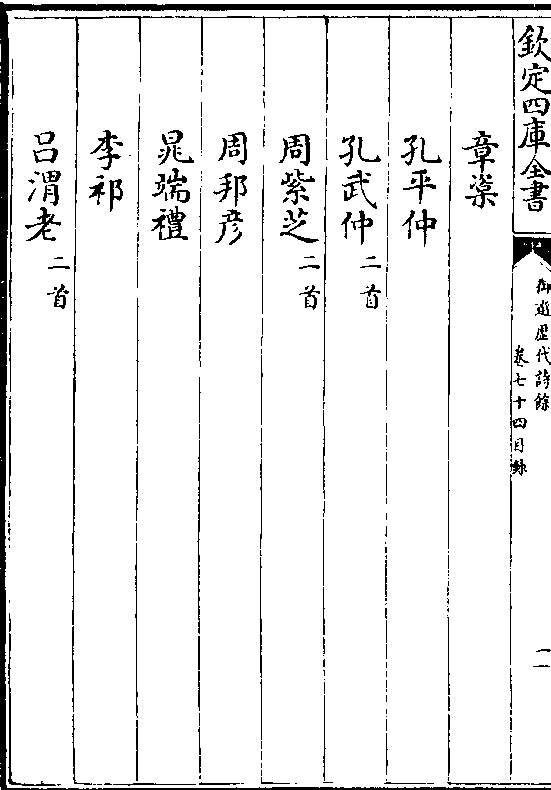 欽定四庫全書
御選歷代詩餘
卷七十四目錄
二
章楶
孔平仲
孔武仲二首
周紫芝二首
周邦彦
晁端禮
李祁
吕渭老二首